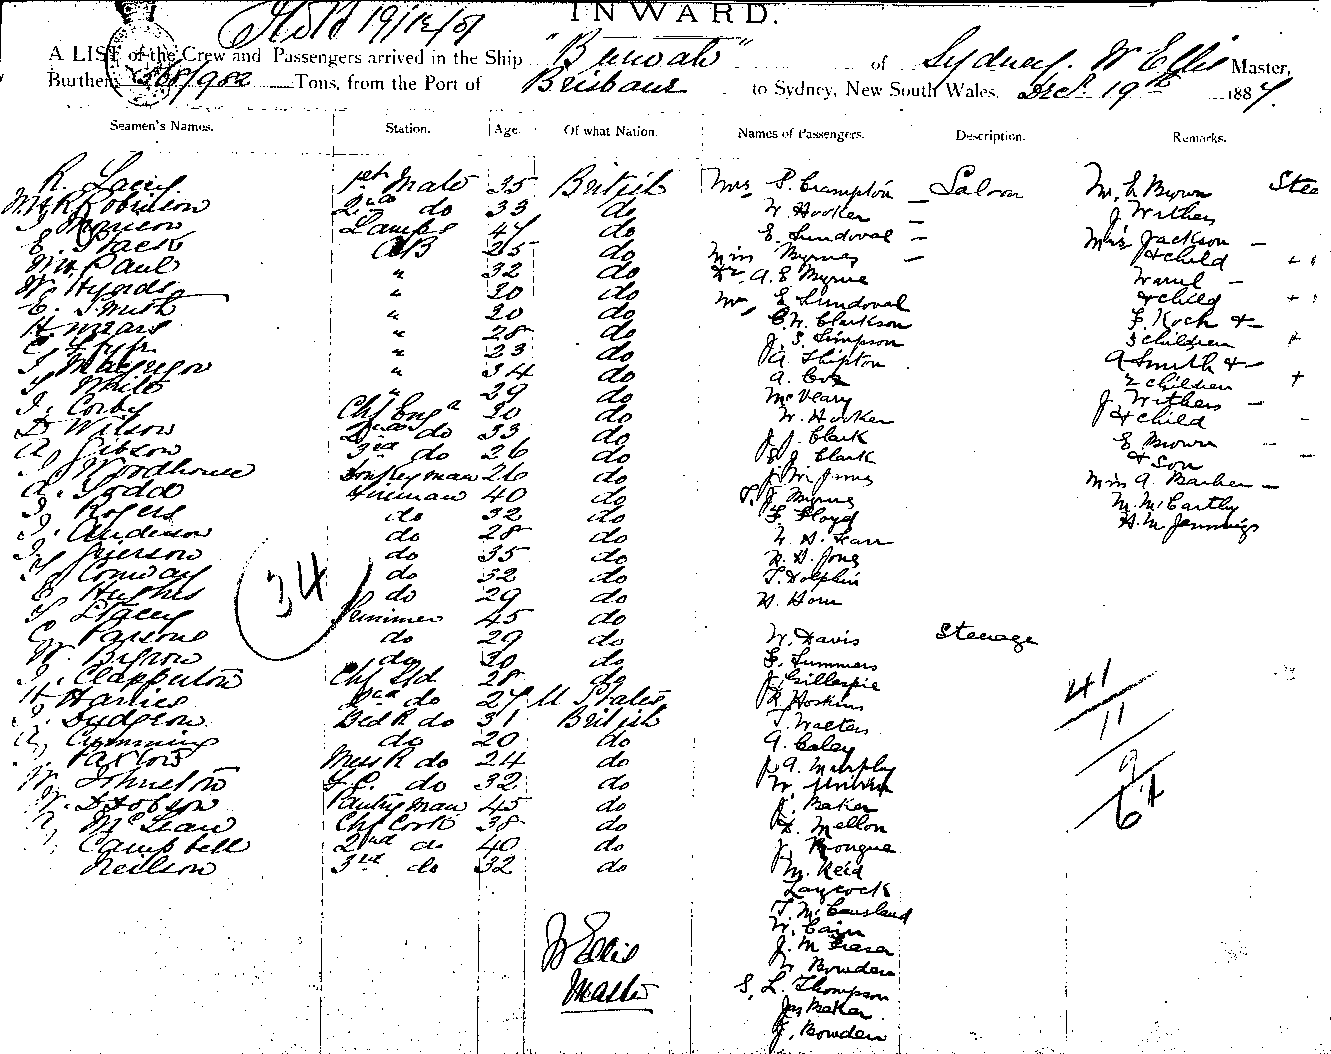 INWARD.
A LIST of the Crew and Passengers arrived in the Ship "Burwah" of Sydney. W Ellis Master,
Burthen 568/982 Tons, from the Port of Brisbane to Sydney, New South Wales, Dec. 19th 1887.
Seamen's Names. Station. Age. Of what Nation. Names of Passengers. Description. Remarks.
R. Lacey 1st Mate 35 British Mrs S. Crampton Saloon Mr. E Brown
Robinson 2nd do 33 do W Hooker J Withers
Morrison Lamps 47 do E. Sundoval Mrs Jackson
E. Stack AB 25 do Miss Byrnes & child
Wm Paul " 32 do A. E Byrne
W. Hynds " 30 do E Sundoval & child
E. Smith " 20 do C. W. Clarkson F. Koch &
H. Mears " 28 do J. S. Simpson 3 children
" 23 do A. Shipton A Smith &
J. MacGregor " 34 do A. Cox 2 children
T. White " 29 do McVeary J Withers
J. Corby Chf Eng 30 do W. Hooker & child
D Wilson 2nd do 33 do J. J. Clark E Brown
A. Gibson 3rd do 26 do J Clark & Son
J Woodhouse Donkeyman 26 do Miss A. Barker
A. Todd Fireman 40 do T. J Byrnes M. McCartly
J. Rogers do 32 do F Floyd H. M Jennings
J. Anderson do 28 do
J. Ryerson do 35 do W. H. Jones
Conway do 32 do T. Dolphin
E Hughes do 29 do W. Horn
T Stacey Trimmer 45 do
34
Parsons do 29 do W. Davis Steerage
W. Bigrow do 30 do F. Summers
J. Clapperton Chf Std 28 do J. Gillespie
H Harries 2nd do 27 U States R Hoskins
J. Dudgeon Bed R do 31 British T. Walters
Cumming do 20 do A. Caley
Paxton Mess R do 24 do J. A. Murphy
W. Johnston F.C. do 32 do
W. Dobson Pantryman 45 do J. Baker
McLean Chf Cook 38 do Mellon
Campbell 2nd do 40 do
Neilson 3rd do 32 do M. Reid
Laycock
T. McCausland
W. Cain
J. M Fraser
W Bowden
S. L. Thompson
Jas Baker
J. Bowden
W Ellis
Master
41
11
9
61